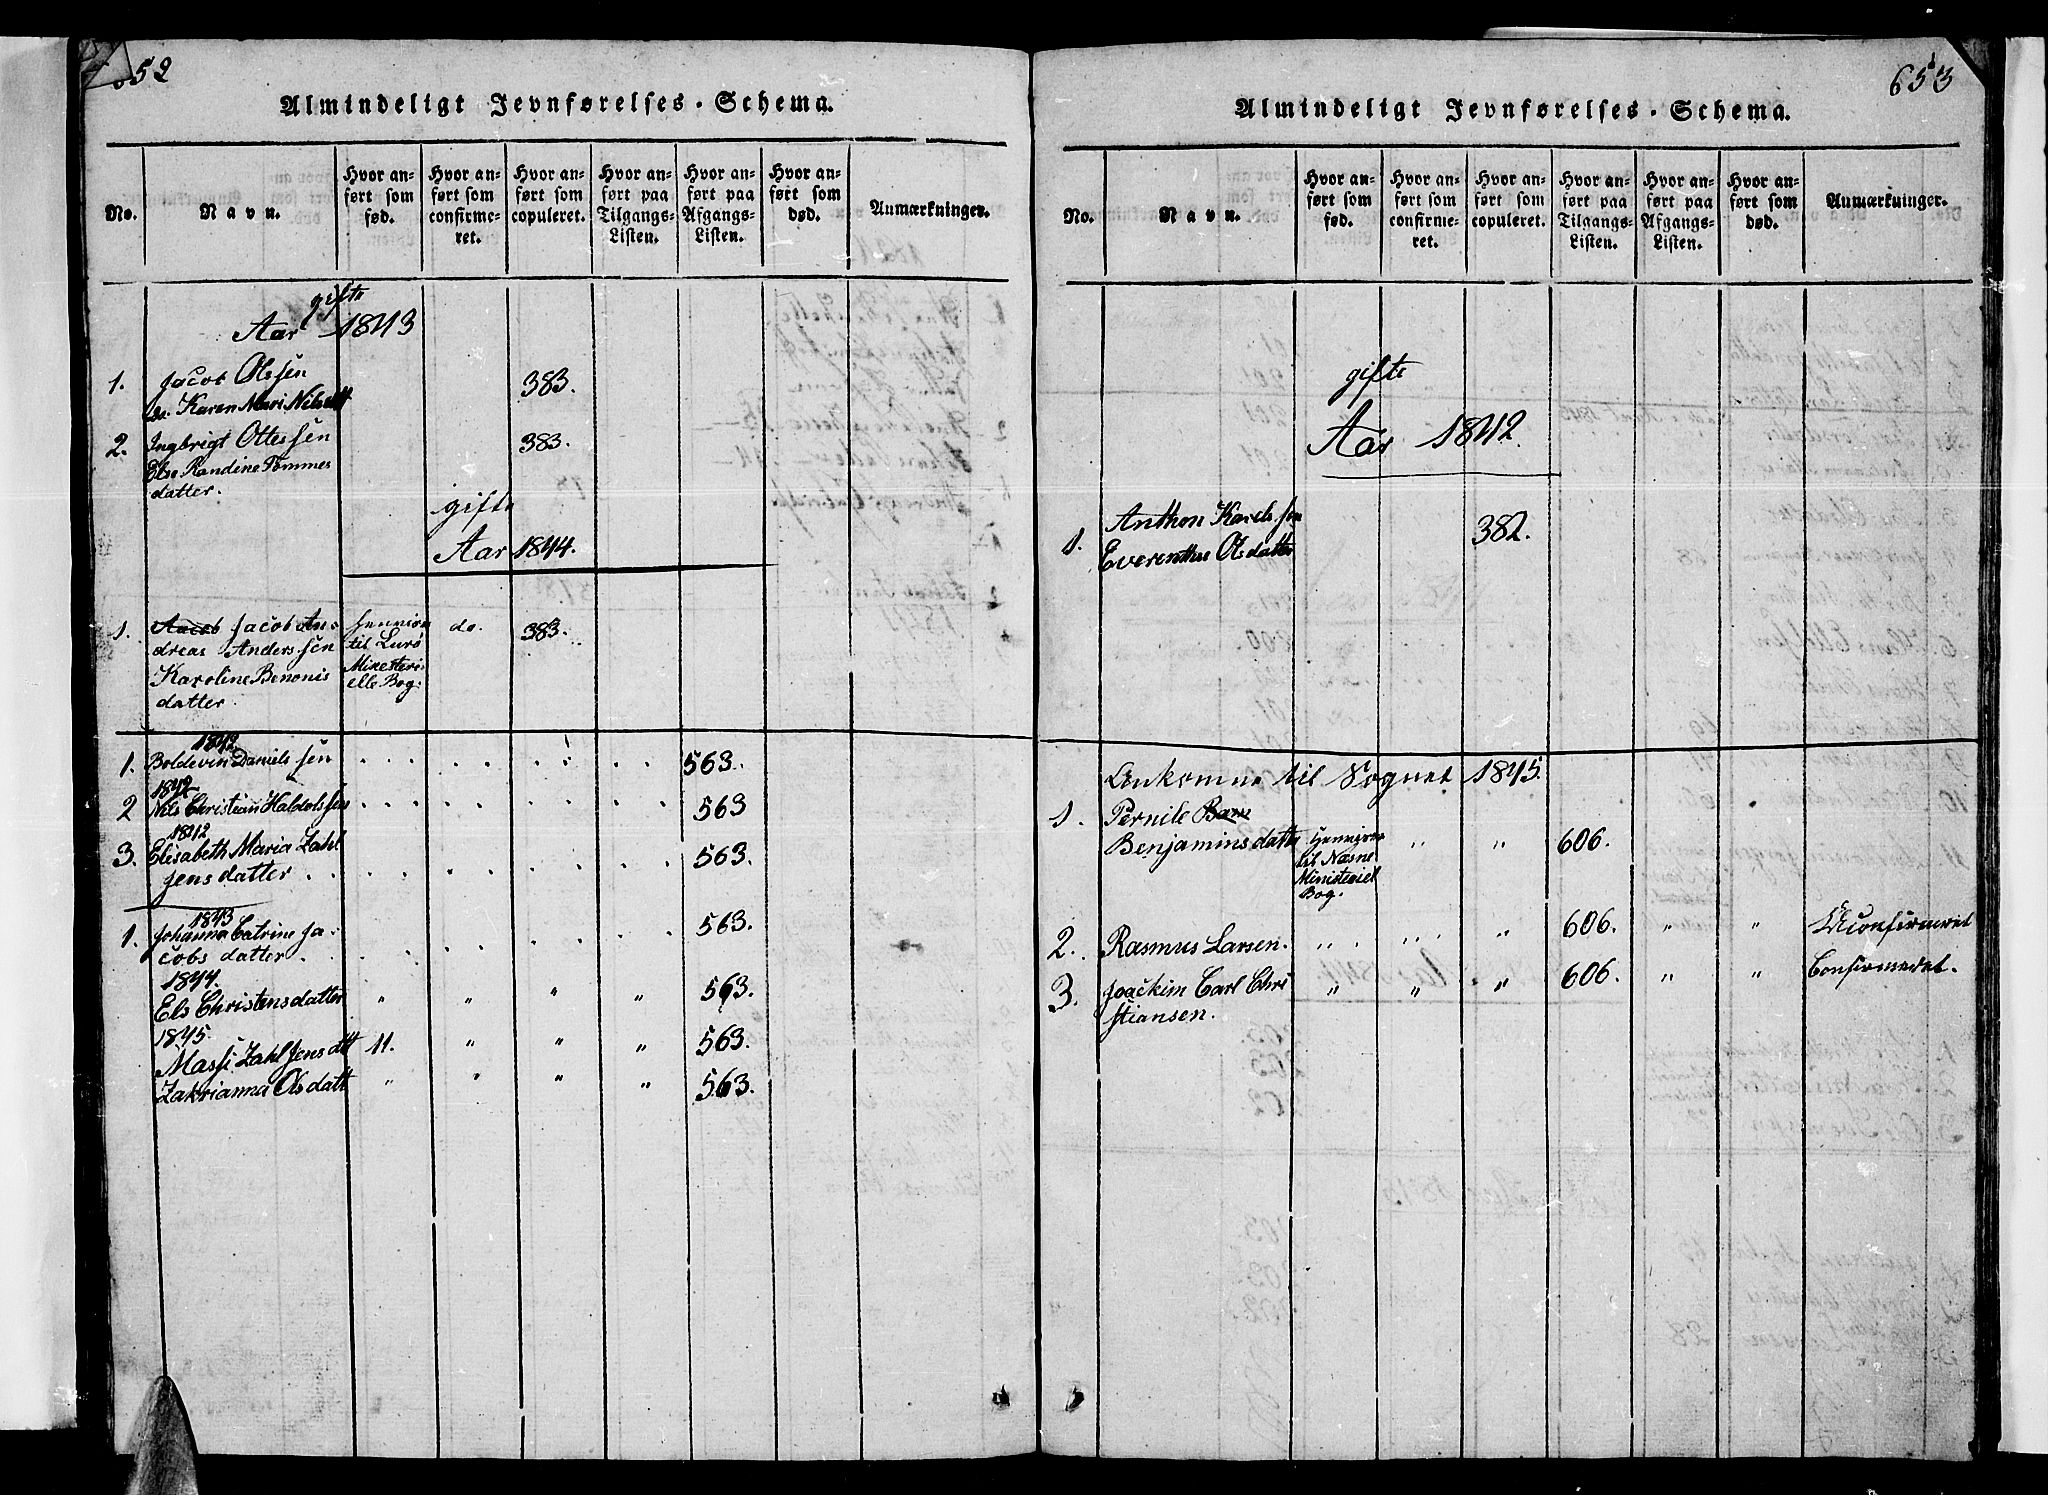 652
Almindeligt Jevnførelses-Schema.
No.
Navn.
Hvor anført som fød.
Hvor anført som confirmeret.
Hvor anført som copuleret.
Hvor anført paa Tilgangs-Listen.
Hvor anført paa Afgangs-Listen.
Hvor anført som død.
Anmærkninger.
gifte
Aar 1843
1. Jacob Olssen 383.
Karen Mari Nilsdtt
2. Ingbrigt Ottessen 383.
Else Randine Tommes
datter.
gifte
Aar 1844.
1. Aacob Jacob An- Henvion do. 383.
dreas Anderssen til Lurö
Karoline Benonis Ministeri-
datter elle Bog.
1842
1. Boldevin Danielssen 563.
1842
2 Nils Christian Haldolssen 563
1842
3. Elisabeth Maria Zahl 563.
Jensdatter
1843
1. Johanna Catrine Ja- 563.
cobs datter
1844.
Els Christensdatter " " " " 563.
1845.
Massi Zahl Jensdtt 11. " " " 563.
Zakrianna Olsdatt " " " " 563.
653
Almindeligt Jevnførelses-Schema.
No.
Navn.
Hvor anført som fød.
Hvor anført som confirmeret.
Hvor anført som copuleret.
Hvor anført paa Tilgangs-Listen.
Hvor anført paa Afgangs-Listen.
Hvor anført som død.
Anmærkninger.
gifte
Aar 1842.
1. Anthon Karelssen 382.
Everenthe Olsdatter
Ankomne til Sognet 1845.
1. Pernile
Benjaminsdatter Henvion " " 606.
til Næsne
Ministeriel
Bog.
2. Rasmus Larsen. " " " 606. " " Uconfirmeret
3. Joackim Carl Chri " " " 606. " " Confirmeret.
stiansen.